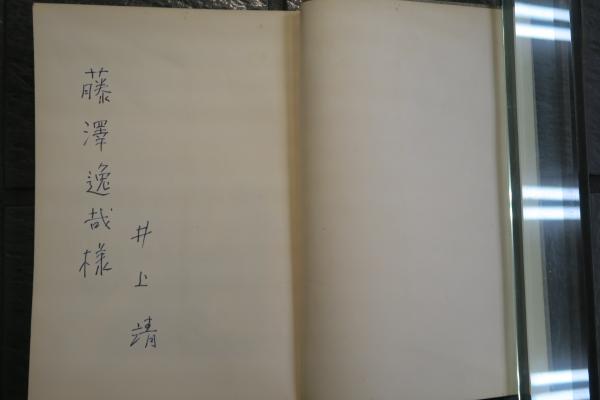 藤澤逸哉様
井上靖